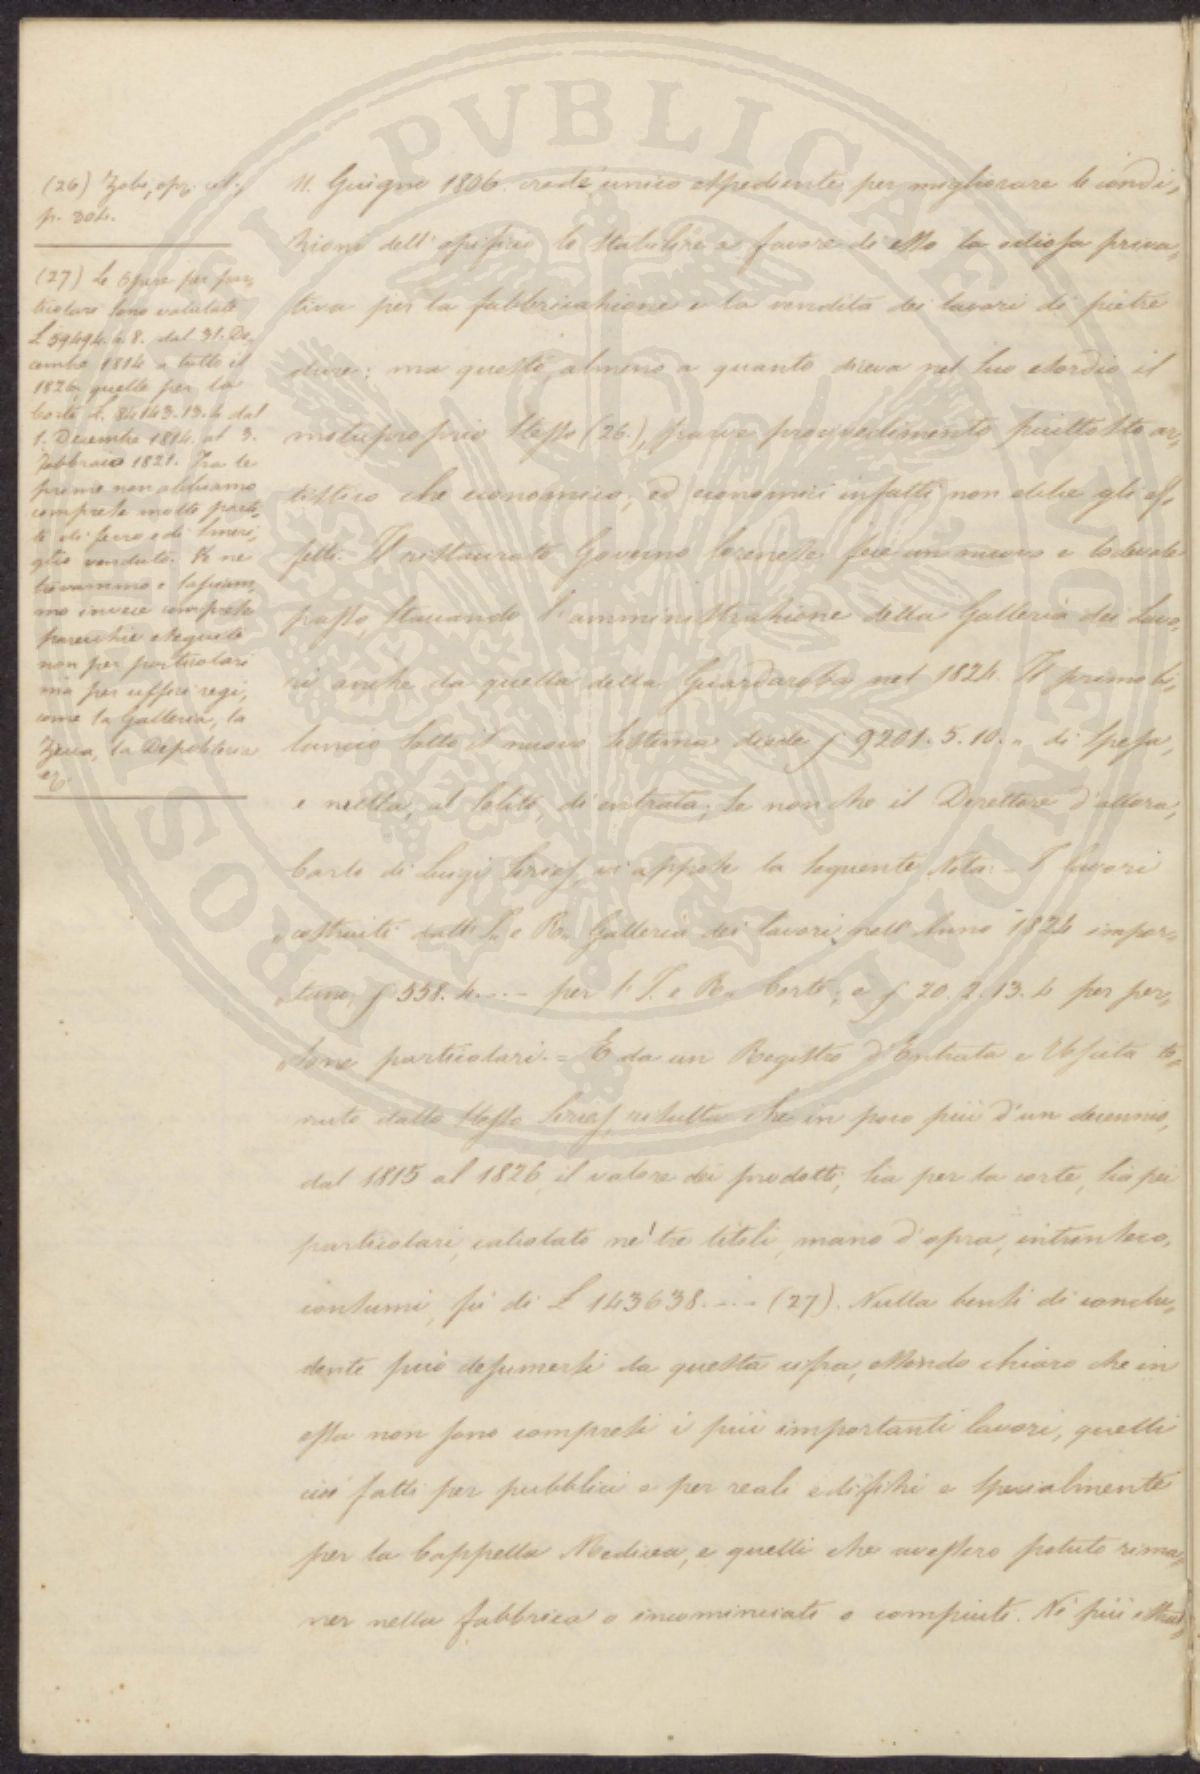 (26) Zobi, op. cit.,
p. 204.
(27) Le opere per par-
ticolari sono valutate
£ 59494.6.8. dal 31. De-
cembre 1814 a tutto il
1826, quelle per la
Corte £. 84143.13.4 dal
1. Decembre 1814. al 3.
Febbraio 1821. Fra le
prime non abbiamo
comprese molte parti-
te di ferro e di smeri-
glio venduto. Ve ne
trovammo e lasciam-
mo invece comprese
parecchie eseguite
non per particolari
ma per ufficî regi,
come la Galleria, la
Zecca, la Depositeria
ec.
11. Giugno 1806. credè unico espediente per migliorare le condi-
zioni dell'opificio lo stabilire a favore di esso la odiosa priva-
tiva per la fabbricazione e la vendita dei lavori di pietre
dure: ma questo, almeno a quanto diceva nel suo esordio il
motuproprio stesso (26.), parve provvedimento piuttosto ar-
tistico che economico; ed economici infatti non ebbe gli ef-
fetti. Il ristaurato Governo lorenese fece un nuovo e lodevole
passo, staccando l'amministrazione della Galleria dei Lavo-
ri anche da quella della Guardaroba nel 1824. Il primo bi-
lancio sotto il nuovo sistema diede ƒ 9201.5.10.„ di spesa,
e nulla, al solito, di entrata; se non che il Direttore d'allora,
Carlo di Luigi Siries, vi appose la seguente Nota: = I lavori
„costruiti dall'I. e R. Galleria dei lavori nell'Anno 1824 impor-
„tano, ƒ 558.4.-.- per l'I. e R. Corte, e ƒ 20.2.13.4 per per-
„sone particolari. = E da un Registro d'Entrata e Uscita te-
nuto dallo stesso Siries, risulta che in poco più d'un decennio,
dal 1815 al 1826, il valore dei prodotti, sia per la corte, sia pei
particolari, calcolato ne' tre titoli, mano d'opra, intrinseco,
consumi, fu di £ 143638.-.- (27). Nulla bensì di conclu-
dente può desumersi da questa cifra, essendo chiaro che in
essa non sono compresi i più importanti lavori, quelli
cioè fatti per pubblici e per reali edifizi e specialmente
per la Cappella Medicea, e quelli che avessero potuto rima-
ner nella fabbrica o incominciati o compiuti. Nè più
PROSIT PVBLICAE VTILITATI DVM